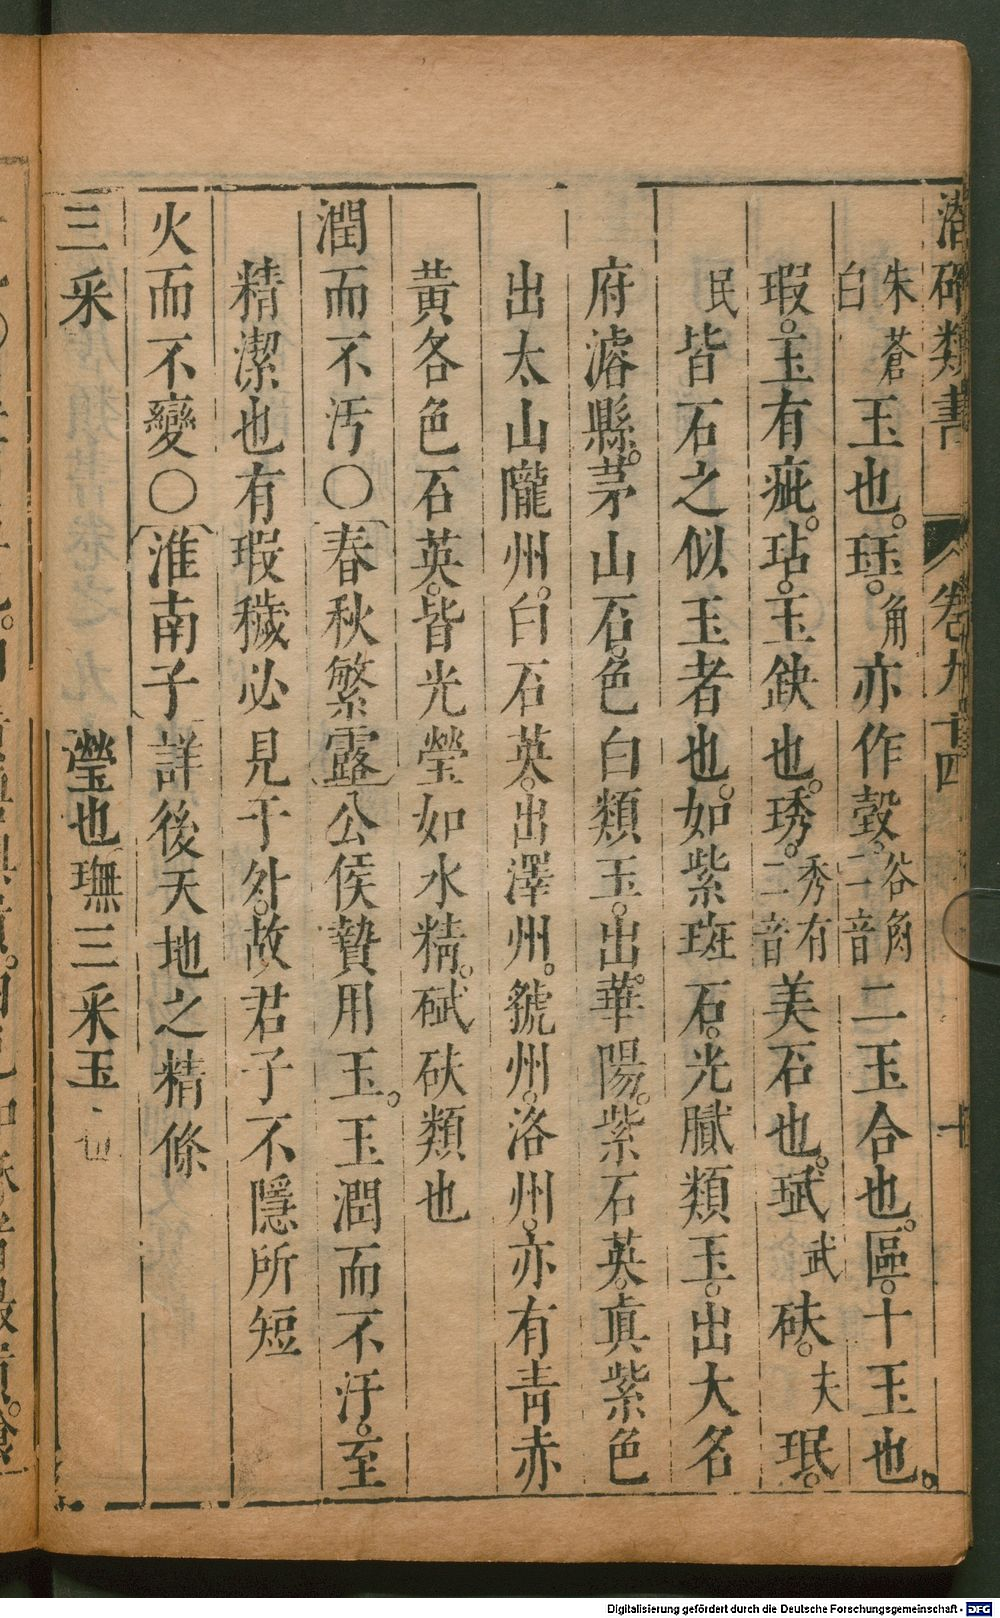 潛確類書 卷九十四 十
朱蒼白玉也。珏。角亦作瑴。谷角二音二玉合也。區。十玉也。
瑕。玉有疵。玷。玉缺也。琇。秀有二音美石也。珷武砆。夫珉。
民皆石之似玉者也。如紫斑石。光膩類玉。出大名
府濬縣。茅山石。色白類玉。出華陽。紫石英。真紫色
出太山隴州。白石英。出澤州。虢州。洛州。亦有青赤
黃各色石英。皆光瑩如水精。碔砆類也
潤而不汚〇春秋繁露公侯贄用玉。玉潤而不汙。至
精潔也有瑕穢必見于外。故君子不隱所短
火而不變〇淮南子詳後天地之精條
三采 瑩也璑三采玉
Digitalisierung gefördert durch die Deutsche Forschungsgemeinschaft - DFG